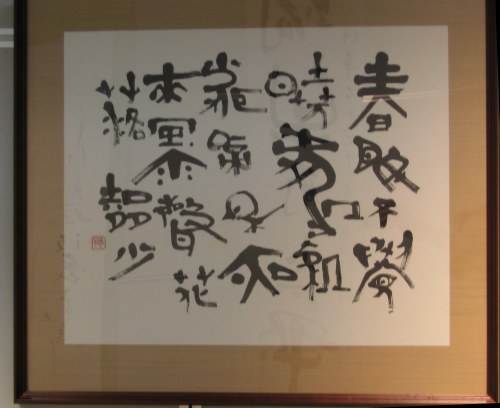 春眠不覺
曉處處聞
啼鳥夜
來風雨聲花
落知多少